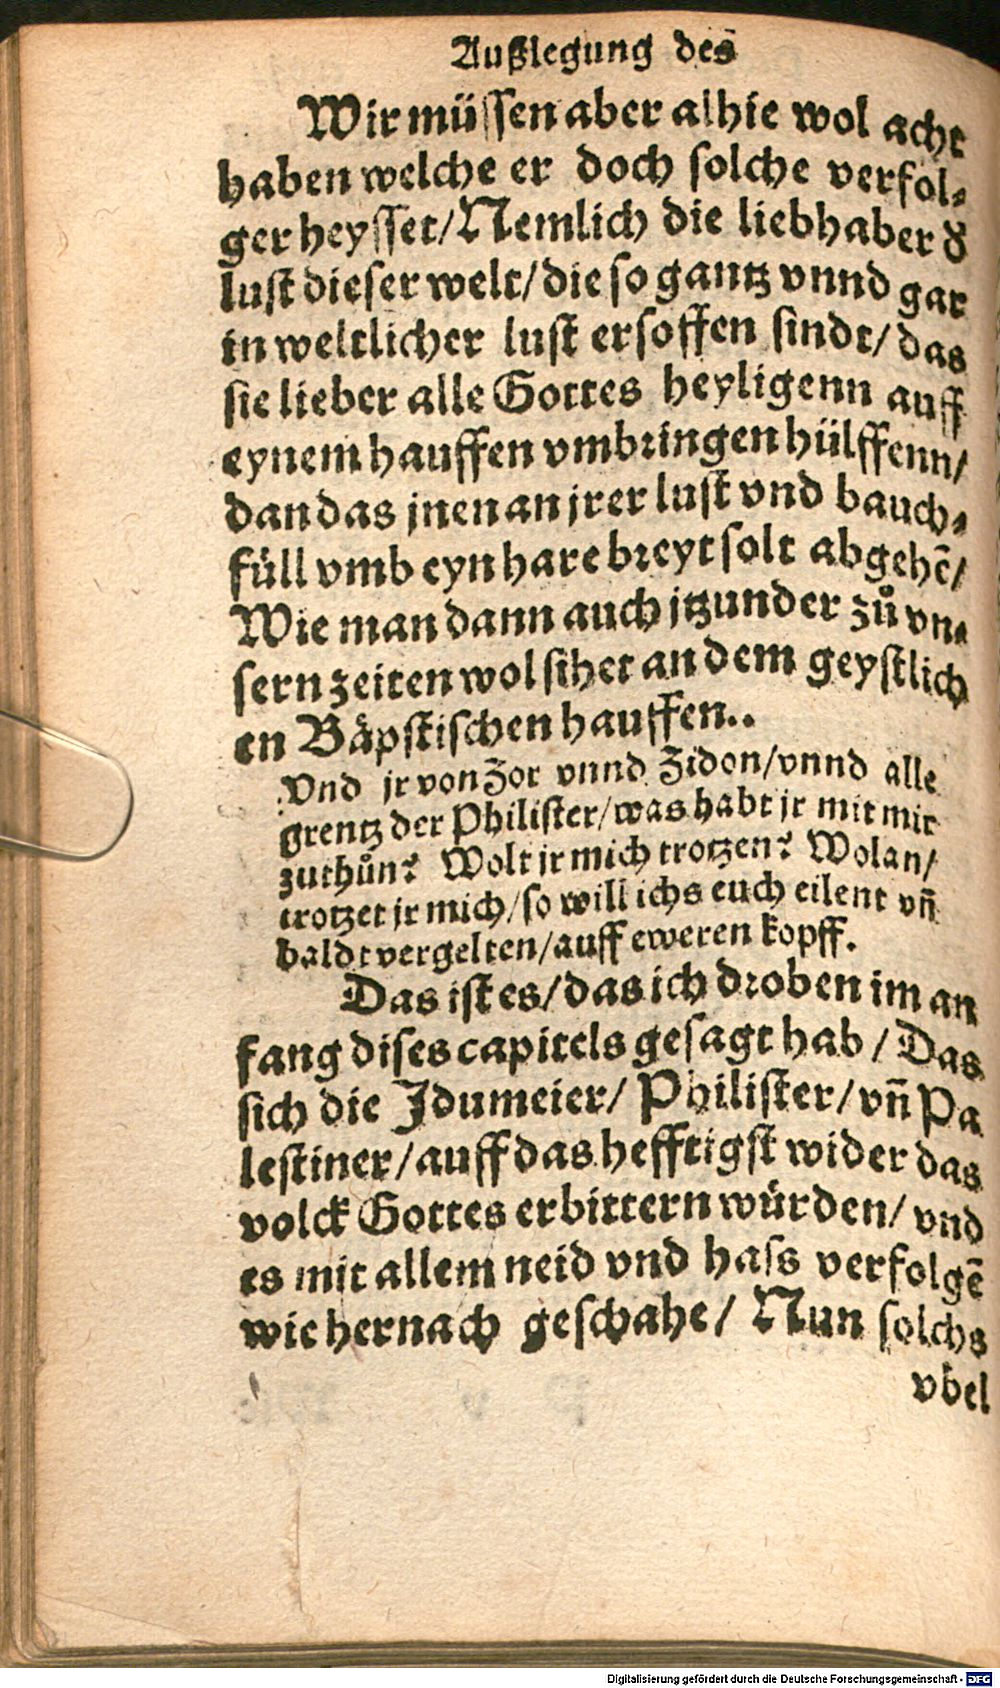 Außlegung des
Wir müssen aber alhie wol acht
haben welche er doch solche verfol⸗
ger heysset/ Nemlich die liebhaber d̕
lust dieser welt/ die so gantz vnnd gar
in weltlicher lust ersoffen sindt/ das
sie lieber alle Gottes heyligenn auff
eynem hauffen vmbringen hülffenn/
dan das jnen an jrer lust vnd bauch⸗
füll vmb eyn hare breyt solt abgehē/
Wie man dann auch jtzunder zů vn⸗
sern zeiten wol sihet an dem geystlich
en Bäpstischen hauffen..
Vnd jr von Zor vnnd Zidon/ vnnd alle
grentz der Philister/ was habt jr mit mir
zuthůn? Wolt jr mich trotzen? Wolan/
trotzet jr mich/ so will ichs euch eilent vn̄
baldt vergelten/ auff eweren kopff.
Das ist es/ das ich droben im an
fang dises capitels gesagt hab/ Das
sich die Idumeier/ Philister/ vn̄ Pa
lestiner/ auff das hefftigst wider das
volck Gottes erbittern würden/ vnd
es mit allem neid vnd hass verfolgē
wie hernach geschahe/ Nun solchs
vbel
Digitalisierung gefördert durch die Deutsche Forschungsgemeinschaft - DFG